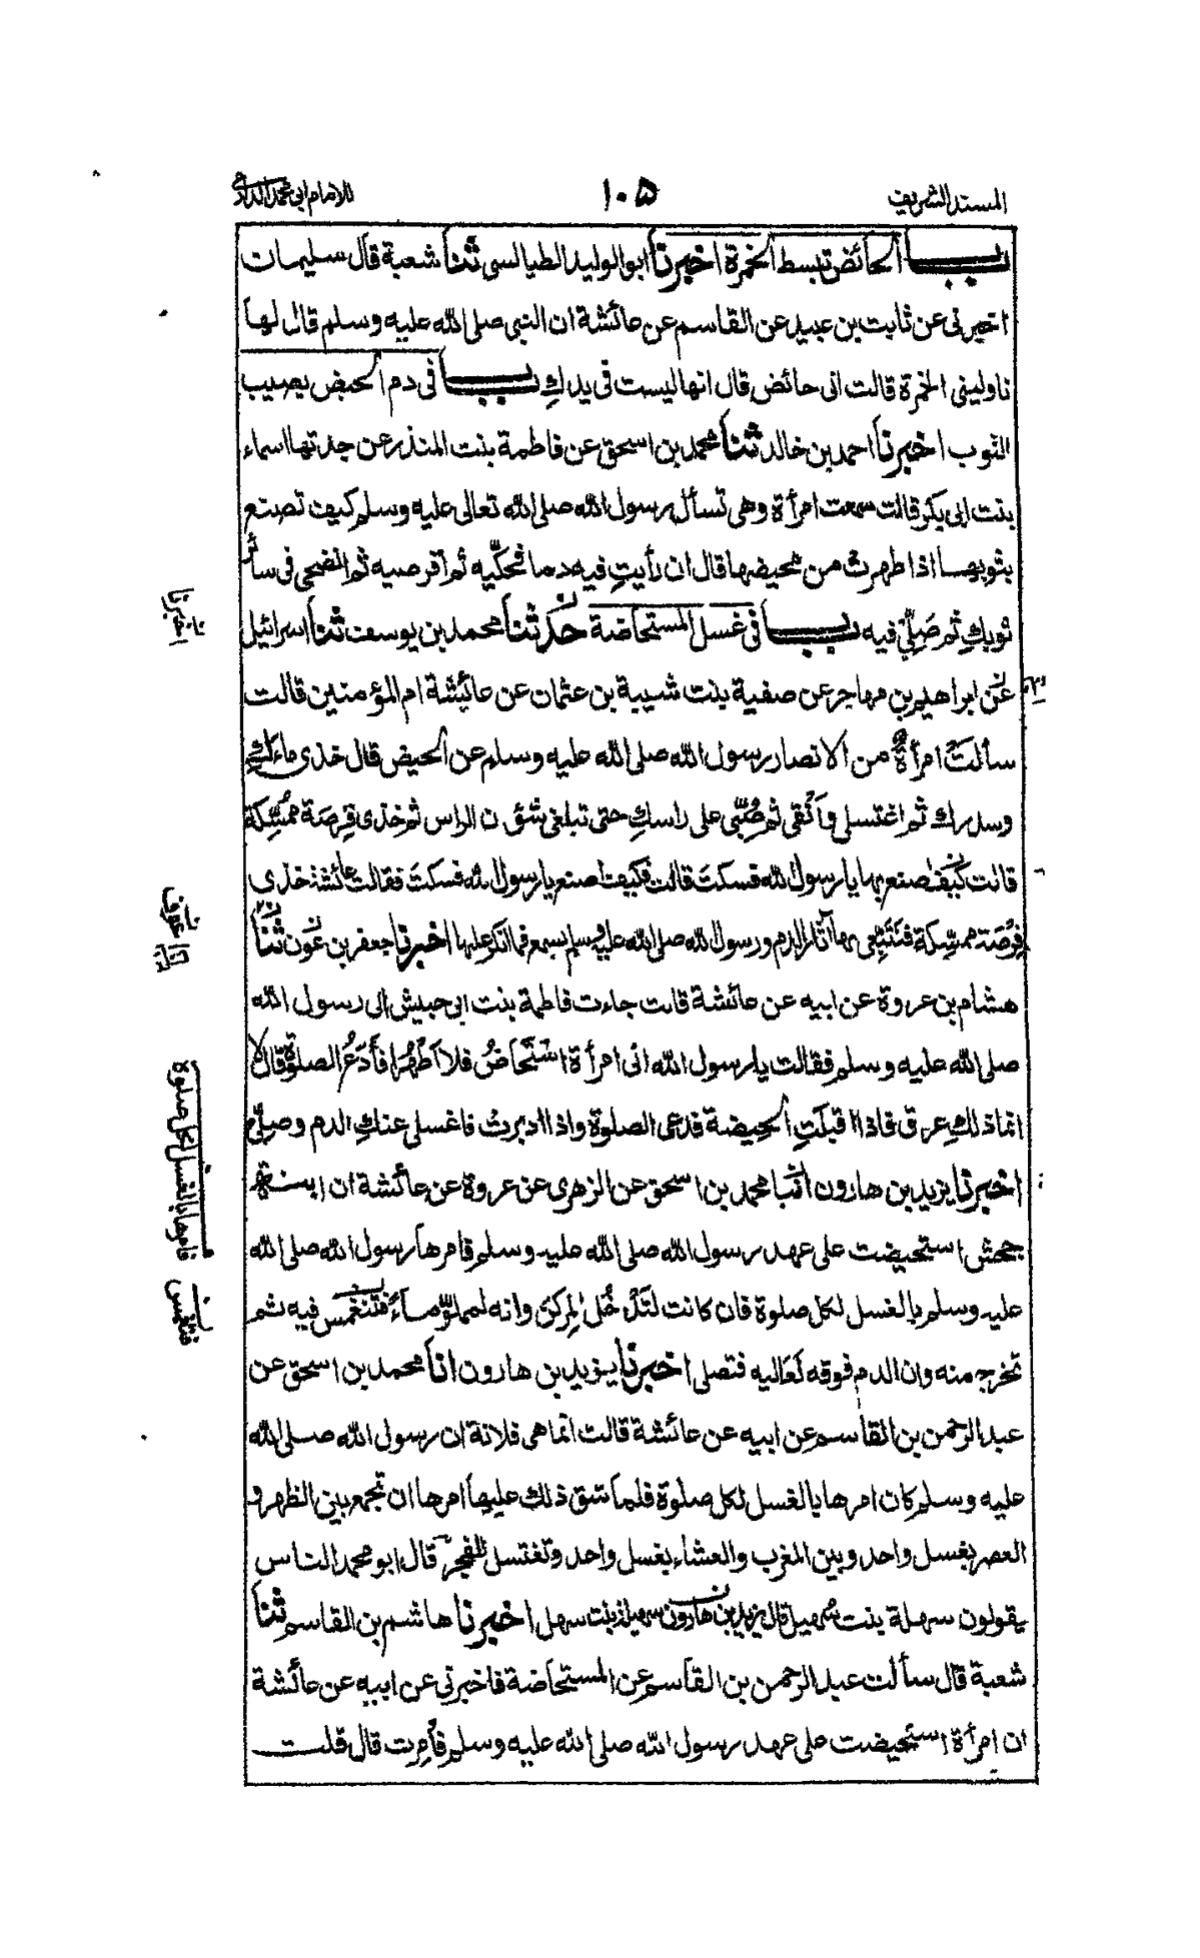 المسند الشريف ١٠٥ للامام ابي محمد الدارمي
باب الحائض تبسط الخمرة اخبرنا ابو الوليد الطيالسي ثنا شعبة قال سليمان
اخبرني عن ثابت بن عبيد عن القاسم عن عائشة ان النبي صلى الله عليه وسلم قال لها
ناوليني الخمرة قالت اني حائض قال انها ليست في يدكِ باب في دم الحيض يصيب
الثوب اخبرنا احمد بن خالد ثنا محمد بن اسحق عن فاطمة بنت المنذر عن جدتها اسماء
بنت ابي بكر قالت سمعت امرأة وهي تسأل رسول الله صلى الله تعالى عليه وسلم كيف تصنع
بثوبها اذا طهرت من محيضها قال ان رأيتِ فيه دما فحكّيه ثم اقرصيه ثم انضحى في سائر
ثوبكِ ثم صَلِّي فيه باب في غسل المستحاضة حدثنا محمد بن يوسف ثنا اسرائيل
عن ابراهيم بن مهاجر عن صفية بنت شيبة بن عثمان عن عائشة ام المؤمنين قالت
سألَت امرأةٌ من الانصار رسول الله صلى الله عليه وسلم عن الحيض قال خذى ماءكِ
وسدركِ ثم اغتسلى وأنقى ثم صُبّى على راسكِ حتى تبلغى شؤن الراس ثم خذى فِرصَة مُمَسَّكة
قالت كيف اصنع بها يا رسول الله فسكتَ قالت فكيف اصنع يا رسول الله فسكتَ فقالت عائشة خذى
فِرْصَة ممسّكة فتَتَبّعى بها آثار الدم ورسول الله صلى الله عليه وسلم يسمع فما انكر عليها اخبرنا جعفر بن عَون ثنا
هشام بن عروة عن ابيه عن عائشة قالت جاءت فاطمة بنت ابي حبيش الى رسول الله
صلى الله عليه وسلم فقالت يا رسول الله انى امرأة اُسْتَحَاضُ فلا اَطْهُر افأَدَعُ الصلوة قال لا
انما ذلكِ عرق فاذا اقبلَتِ الحيضة فدعى الصلوة واذا ادبرت فاغسلى عنكِ الدم وصلّي
اخبرنا يزيد بن هارون انبا محمد بن اسحق عن الزهرى عن عروة عن عائشة ان ابنة
جحش استحيضت على عهد رسول الله صلى الله عليه وسلم فامرها رسول الله صلى الله
عليه وسلم بالغسل لكل صلوة فان كانت لتَدْخُلُ المِركنَ وانه لمملوّ ماءً فتنغمس فيه ثم
تخرج منه وان الدم فوقه لَعَاليه فتصلى اخبرنا يزيد بن هارون انا محمد بن اسحق عن
عبد الرحمن بن القاسم عن ابيه عن عائشة قالت انما هى فلانة ان رسول الله صلى الله
عليه وسلم كان امرها بالغسل لكل صلوة فلما شق ذلك عليها امرها ان تجمع بين الظهر و
العصر بغسل واحد وبين المغرب والعشاء بغسل واحد وتغتسل للفجر قال ابو محمد الناس
يقولون سهلة بنت سهيل قال يزيد بن هارون سهيلة بنت سهل اخبرنا هاشم بن القاسم ثنا
شعبة قال سألت عبد الرحمن بن القاسم عن المستحاضة فاخبرنى عن ابيه عن عائشة
ان امرأة استحيضت على عهد رسول الله صلى الله عليه وسلم فأمِرت قال قلت
اخبرنا
فامرها بالغسل لكل صلوة